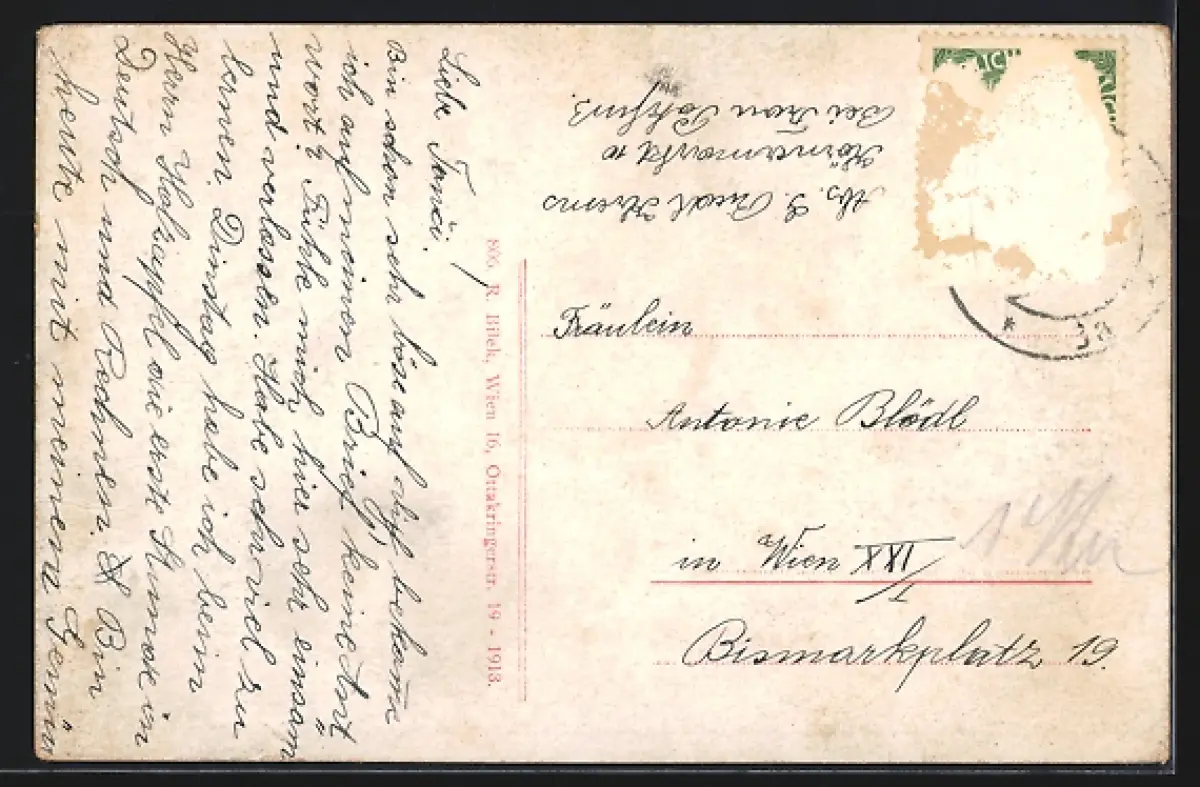 Liebe Toncsi.
Bin schon sehr böse auf dich, bekam
ich auf meinen Brief keine Ant
wort? Fühle mich hier sehr einsam
und verlassen. Habe sehr viel zu
lernen. Dinstag habe ich beim
Herrn Holzapfel die erste Stunde in
Deutsch und Rechnen. Bin
heute mit meinem
806 R. Bilek, Wien 16, Ottakringerstr. 19 - 1913.
Abs. J. Riedl Krems
10
bei Frau
Fräulein
Antonie Blödl
in Wien XXI/I
Bismarkplatz 19.